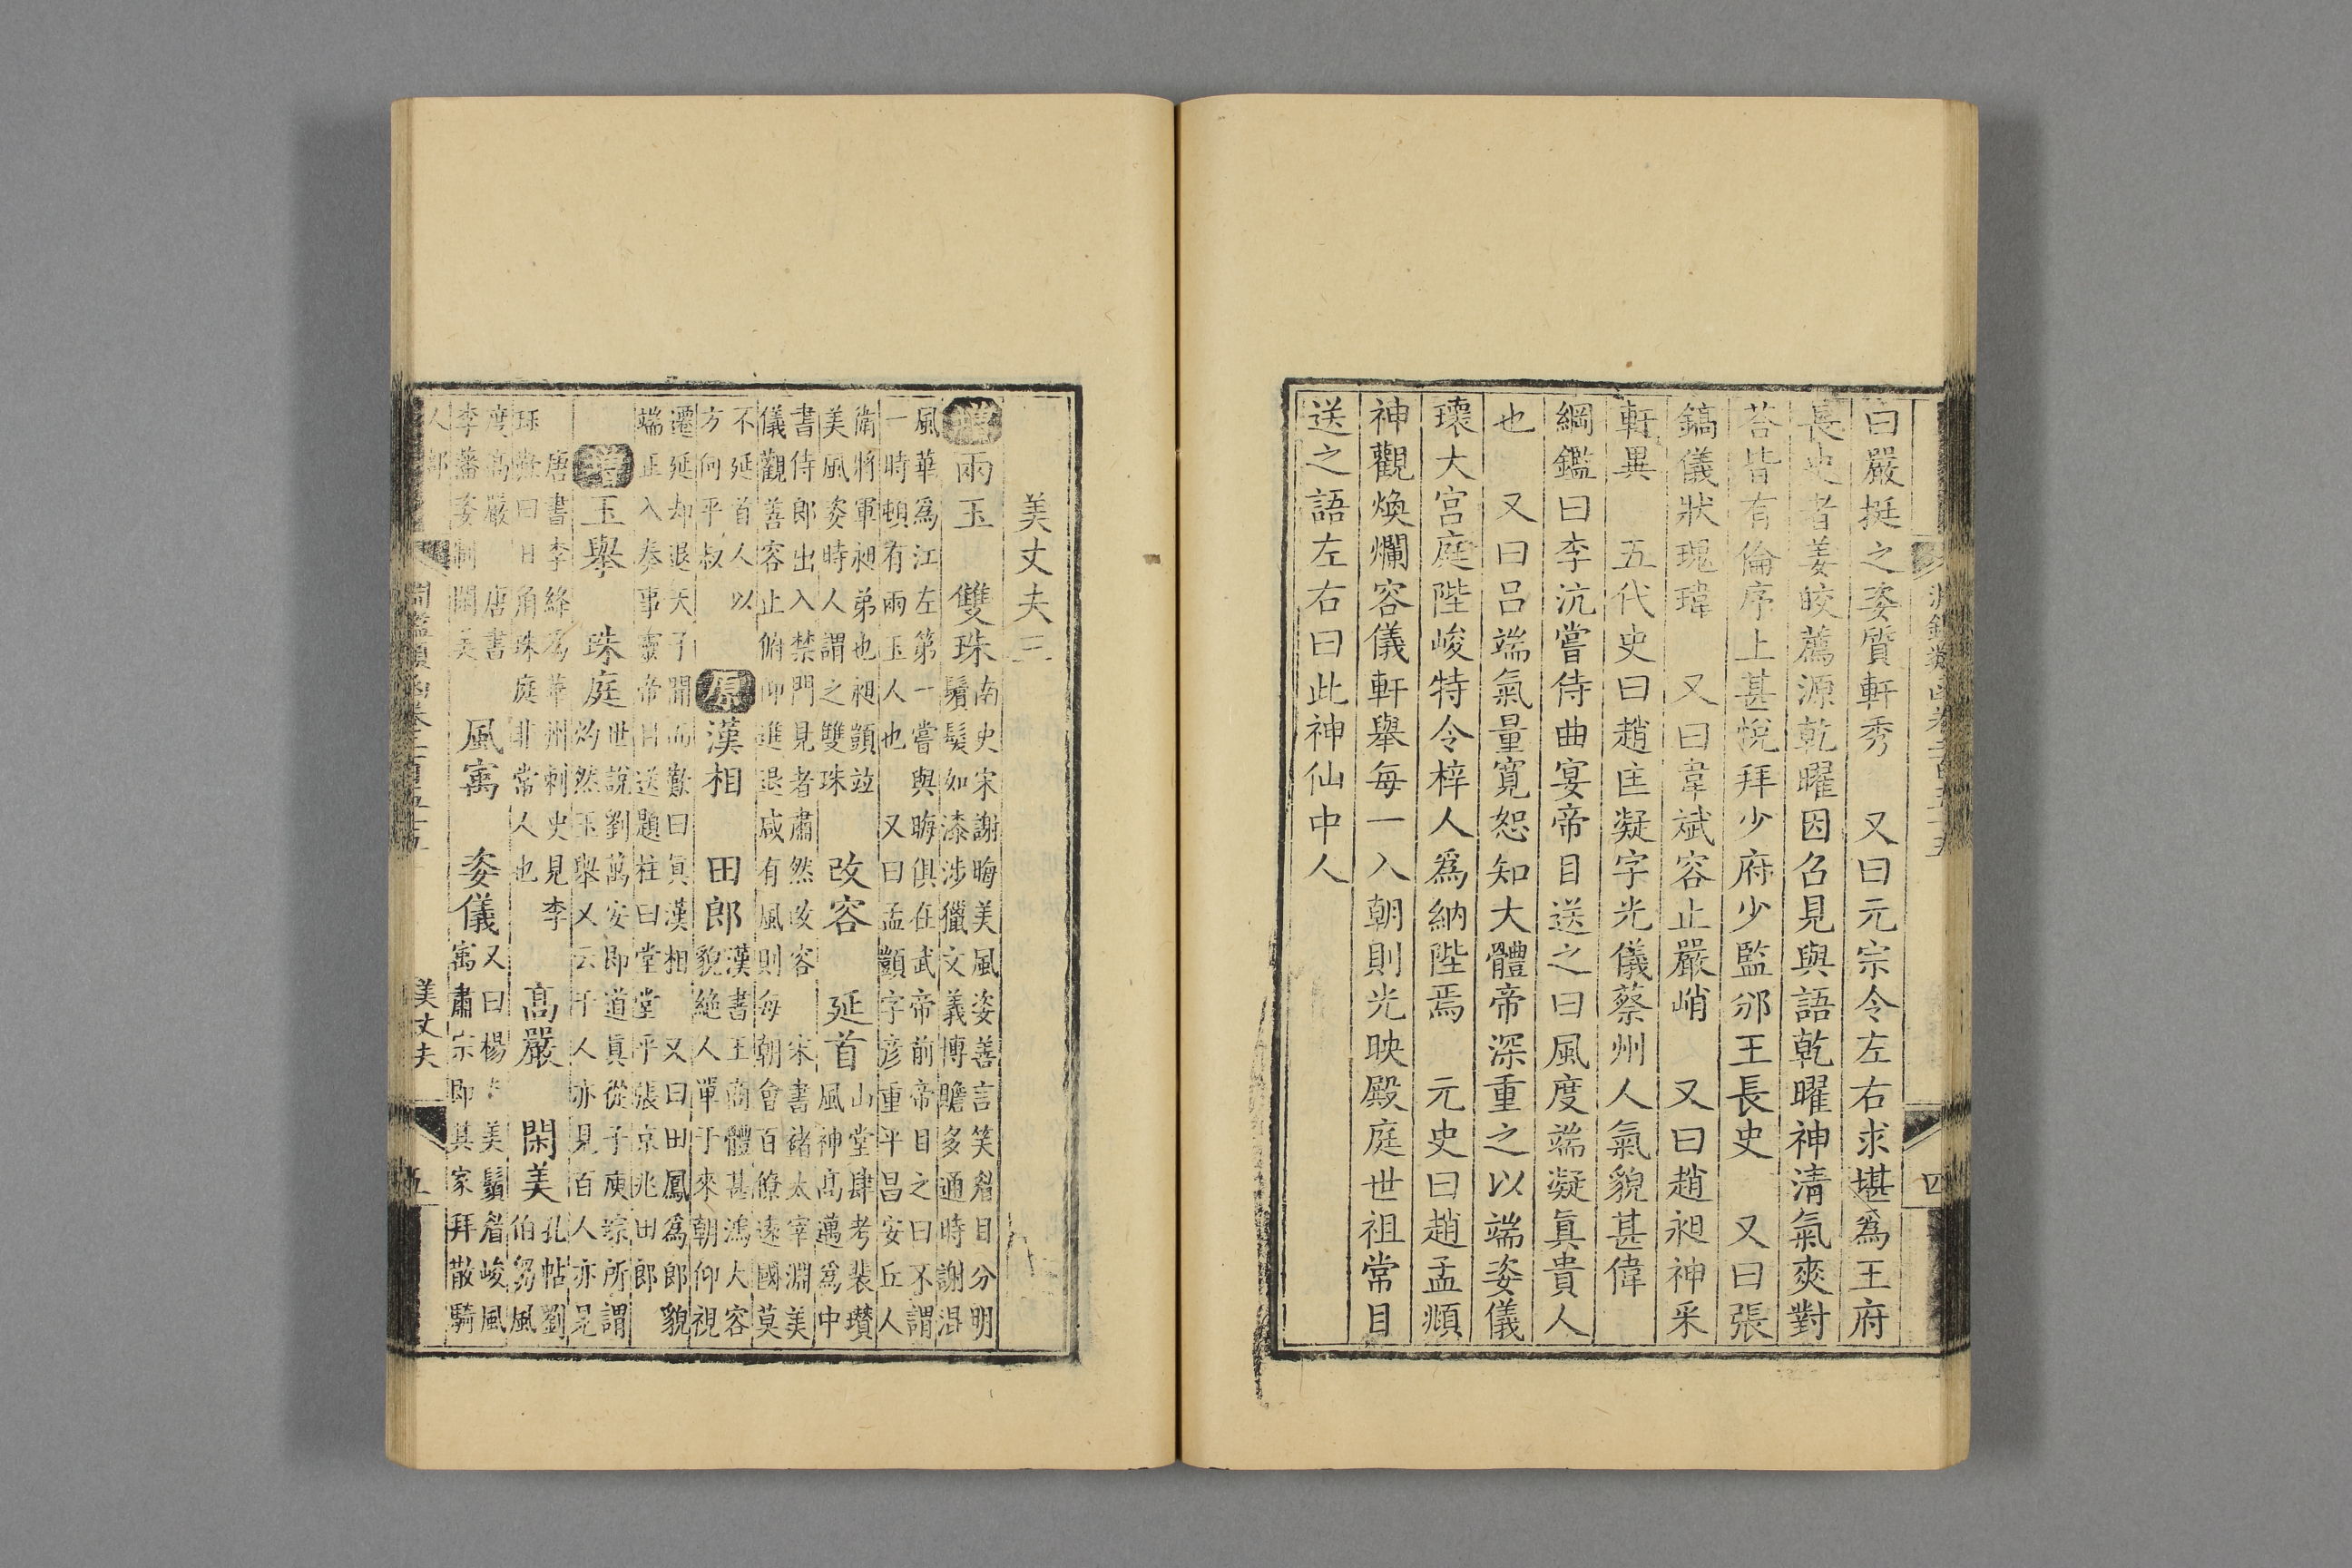 曰嚴挺之姿質軒秀　又曰元宗令左右求堪爲王府
長史者姜皎薦源乾曜因召見與語乾曜神清氣爽對
荅皆有倫序上甚悅拜少府少監邠王長史　又曰張
鎬儀狀瑰瑋　又曰韋斌容止嚴峭　又曰趙昶神采
軒異　五代史曰趙匡凝字光儀蔡州人氣貌甚偉
綱鑑曰李沆嘗侍曲宴帝目送之曰風度端凝眞貴人
也　又曰呂端氣量寬恕知大體帝深重之以端姿儀
瓌大宮庭陛峻特令梓人爲納陛焉　元史曰趙孟頫
神觀煥爛容儀軒舉每一入朝則光映殿庭世祖常目
送之語左右曰此神仙中人
四
美丈夫三
兩玉　雙珠
南史宋謝晦美風姿善言笑眉目分明
鬚髮如漆涉獵文義博贍多通時謝混
風華爲江左第一嘗與晦俱在武帝前帝目之曰不謂
一時頓有兩玉人也　又曰孟顗字彥重平昌安丘人
衛將軍昶弟也昶顗竝
美風姿時人謂之雙珠
改容　延首
山堂肆考裴瓚
風神高邁爲中
書侍郎出入禁門見者肅然改容　宋書褚太宰淵美
儀觀善容止俯仰進退咸有風則每朝會百僚遠國莫
不延首人以
方何平叔
原漢相　田郎
漢書王商體甚鴻大容
貌絶人單于來朝仰視
遷延却退天子聞而歎曰眞漢相　又曰田鳳爲郎貌
端正入奏事靈帝目送題柱曰堂堂乎張京兆田郎
增玉舉　珠庭
世說劉萬安即道眞從子庾琮所謂
灼然玉舉又云千人亦見百人亦見
唐書李絳爲華州刺史見李
珏曰日角珠庭非常人也
高嚴　閑美
孔帖劉
伯芻風
度高嚴　唐書
李藩姿制閑美
風寓　姿儀
又曰楊　美鬚眉峻風
寓　肅宗即　其家拜散騎
美丈夫
五